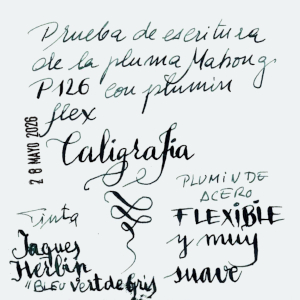 Prueba de escritura
de la pluma Mahong
P126 con plumin
flex
Caligrafia
28 MAYO 2026
PLUMIN DE
ACERO
FLEXIBLE
y muy
suave
Tinta
Jaques
Herbin
"BLEU Vert de Gris